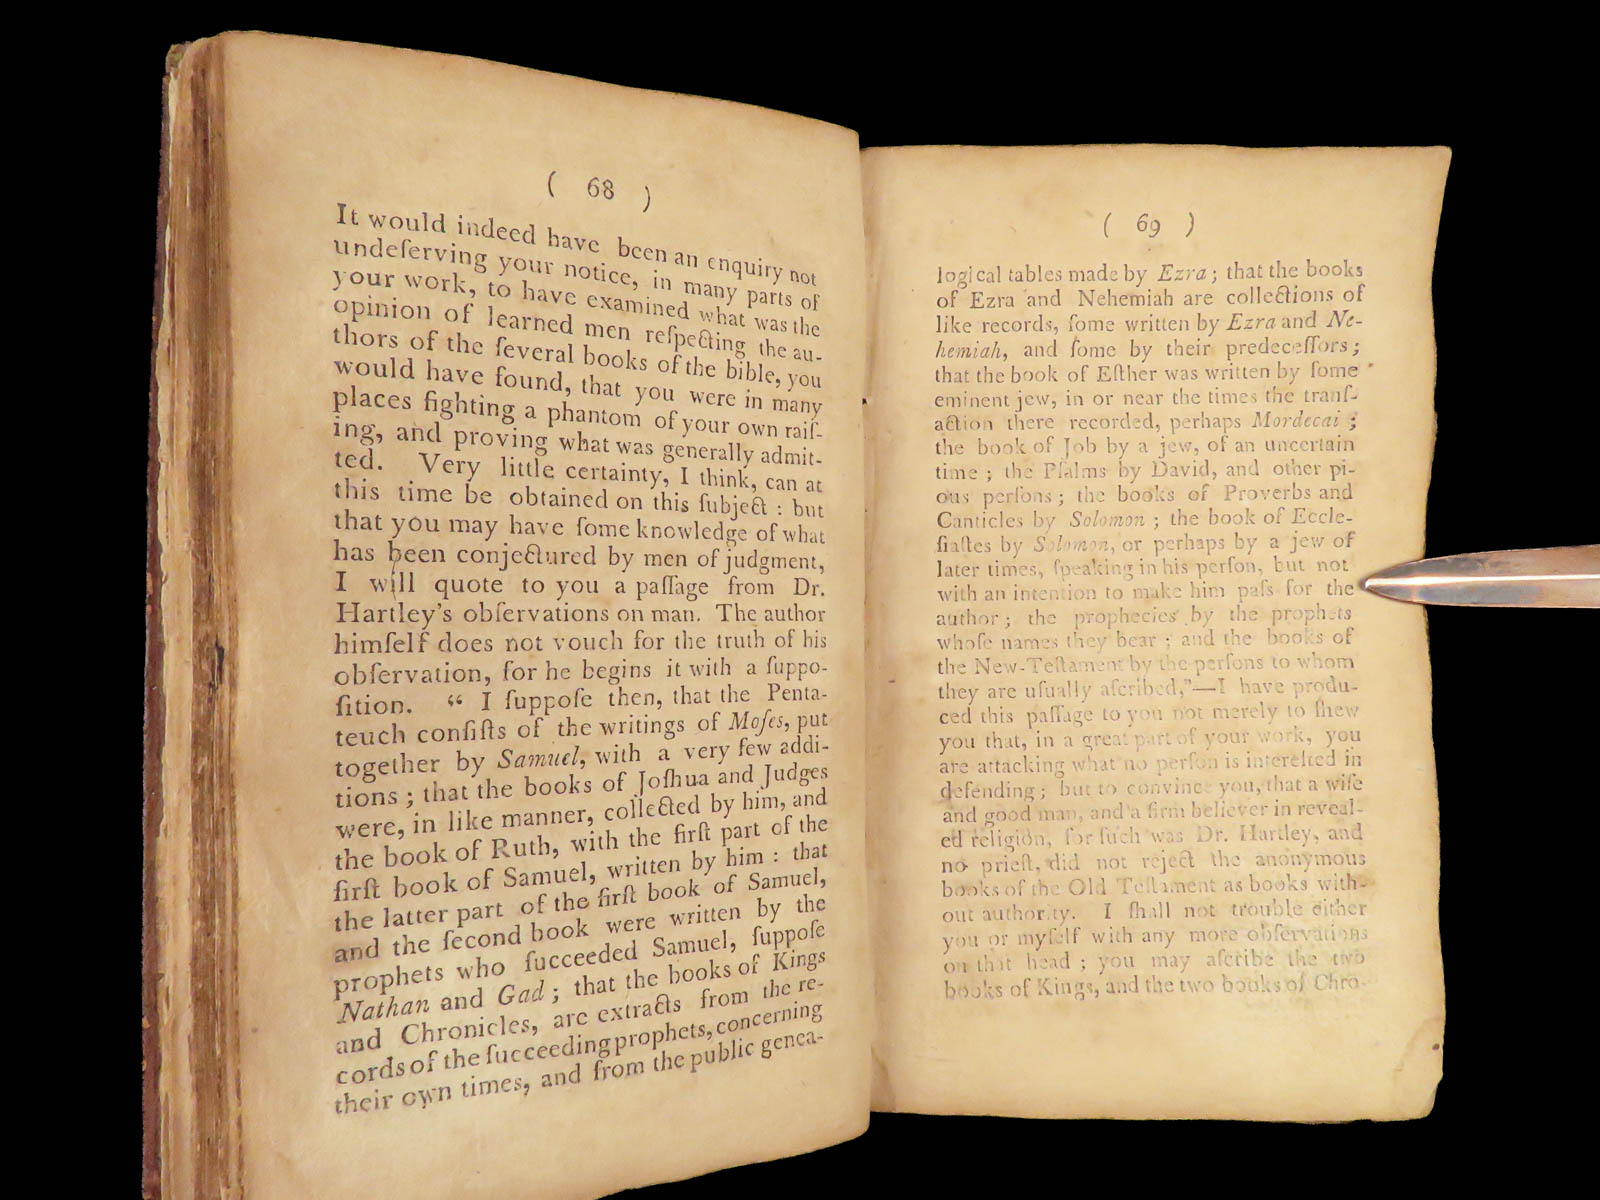 ( 68 )
It would indeed have been an enquiry not
undeſerving your notice, in many parts of
your work, to have examined what was the
opinion of learned men reſpecting the au-
thors of the ſeveral books of the bible, you
would have found, that you were in many
places fighting a phantom of your own raiſ-
ing, and proving what was generally admit-
ted. Very little certainty, I think, can at
this time be obtained on this ſubject : but
that you may have ſome knowledge of what
has been conjectured by men of judgment,
I will quote to you a paſſage from Dr.
Hartley's obſervations on man. The author
himſelf does not vouch for the truth of his
obſervation, for he begins it with a ſuppo-
ſition. “ I ſuppoſe then, that the Penta-
teuch conſiſts of the writings of Moſes, put
together by Samuel, with a very few addi-
tions ; that the books of Joſhua and Judges
were, in like manner, collected by him, and
the book of Ruth, with the firſt part of the
firſt book of Samuel, written by him : that
the latter part of the firſt book of Samuel,
and the ſecond book were written by the
prophets who ſucceeded Samuel, ſuppoſe
Nathan and Gad ; that the books of Kings
and Chronicles, are extracts from the re-
cords of the ſucceeding prophets, concerning
their own times, and from the public genea-
( 69 )
logical tables made by Ezra ; that the books
of Ezra and Nehemiah are collections of
like records, ſome written by Ezra and Ne-
hemiah, and ſome by their predeceſſors ;
that the book of Eſther was written by ſome
eminent jew, in or near the times the tranſ-
action there recorded, perhaps Mordecai ;
the book of Job by a jew, of an uncertain
time ; the Pſalms by David, and other pi-
ous perſons ; the books of Proverbs and
Canticles by Solomon ; the book of Eccle-
ſiaſtes by Solomon, or perhaps by a jew of
later times, ſpeaking in his perſon, but not
with an intention to make him paſs for the
author ; the prophecies by the prophets
whoſe names they bear ; and the books of
the New-Teſtament by the perſons to whom
they are uſually aſcribed,”—I have produ-
ced this paſſage to you not merely to ſhew
you that, in a great part of your work, you
are attacking what no perſon is intereſted in
defending ; but to convince you, that a wiſe
and good man, and a firm believer in reveal-
ed religion, for ſuch was Dr. Hartley, and
no prieſt, did not reject the anonymous
books of the Old Teſtament as books with-
out authority. I ſhall not trouble either
you or myſelf with any more obſervations
on that head ; you may aſcribe the two
books of Kings, and the two books of Chro-